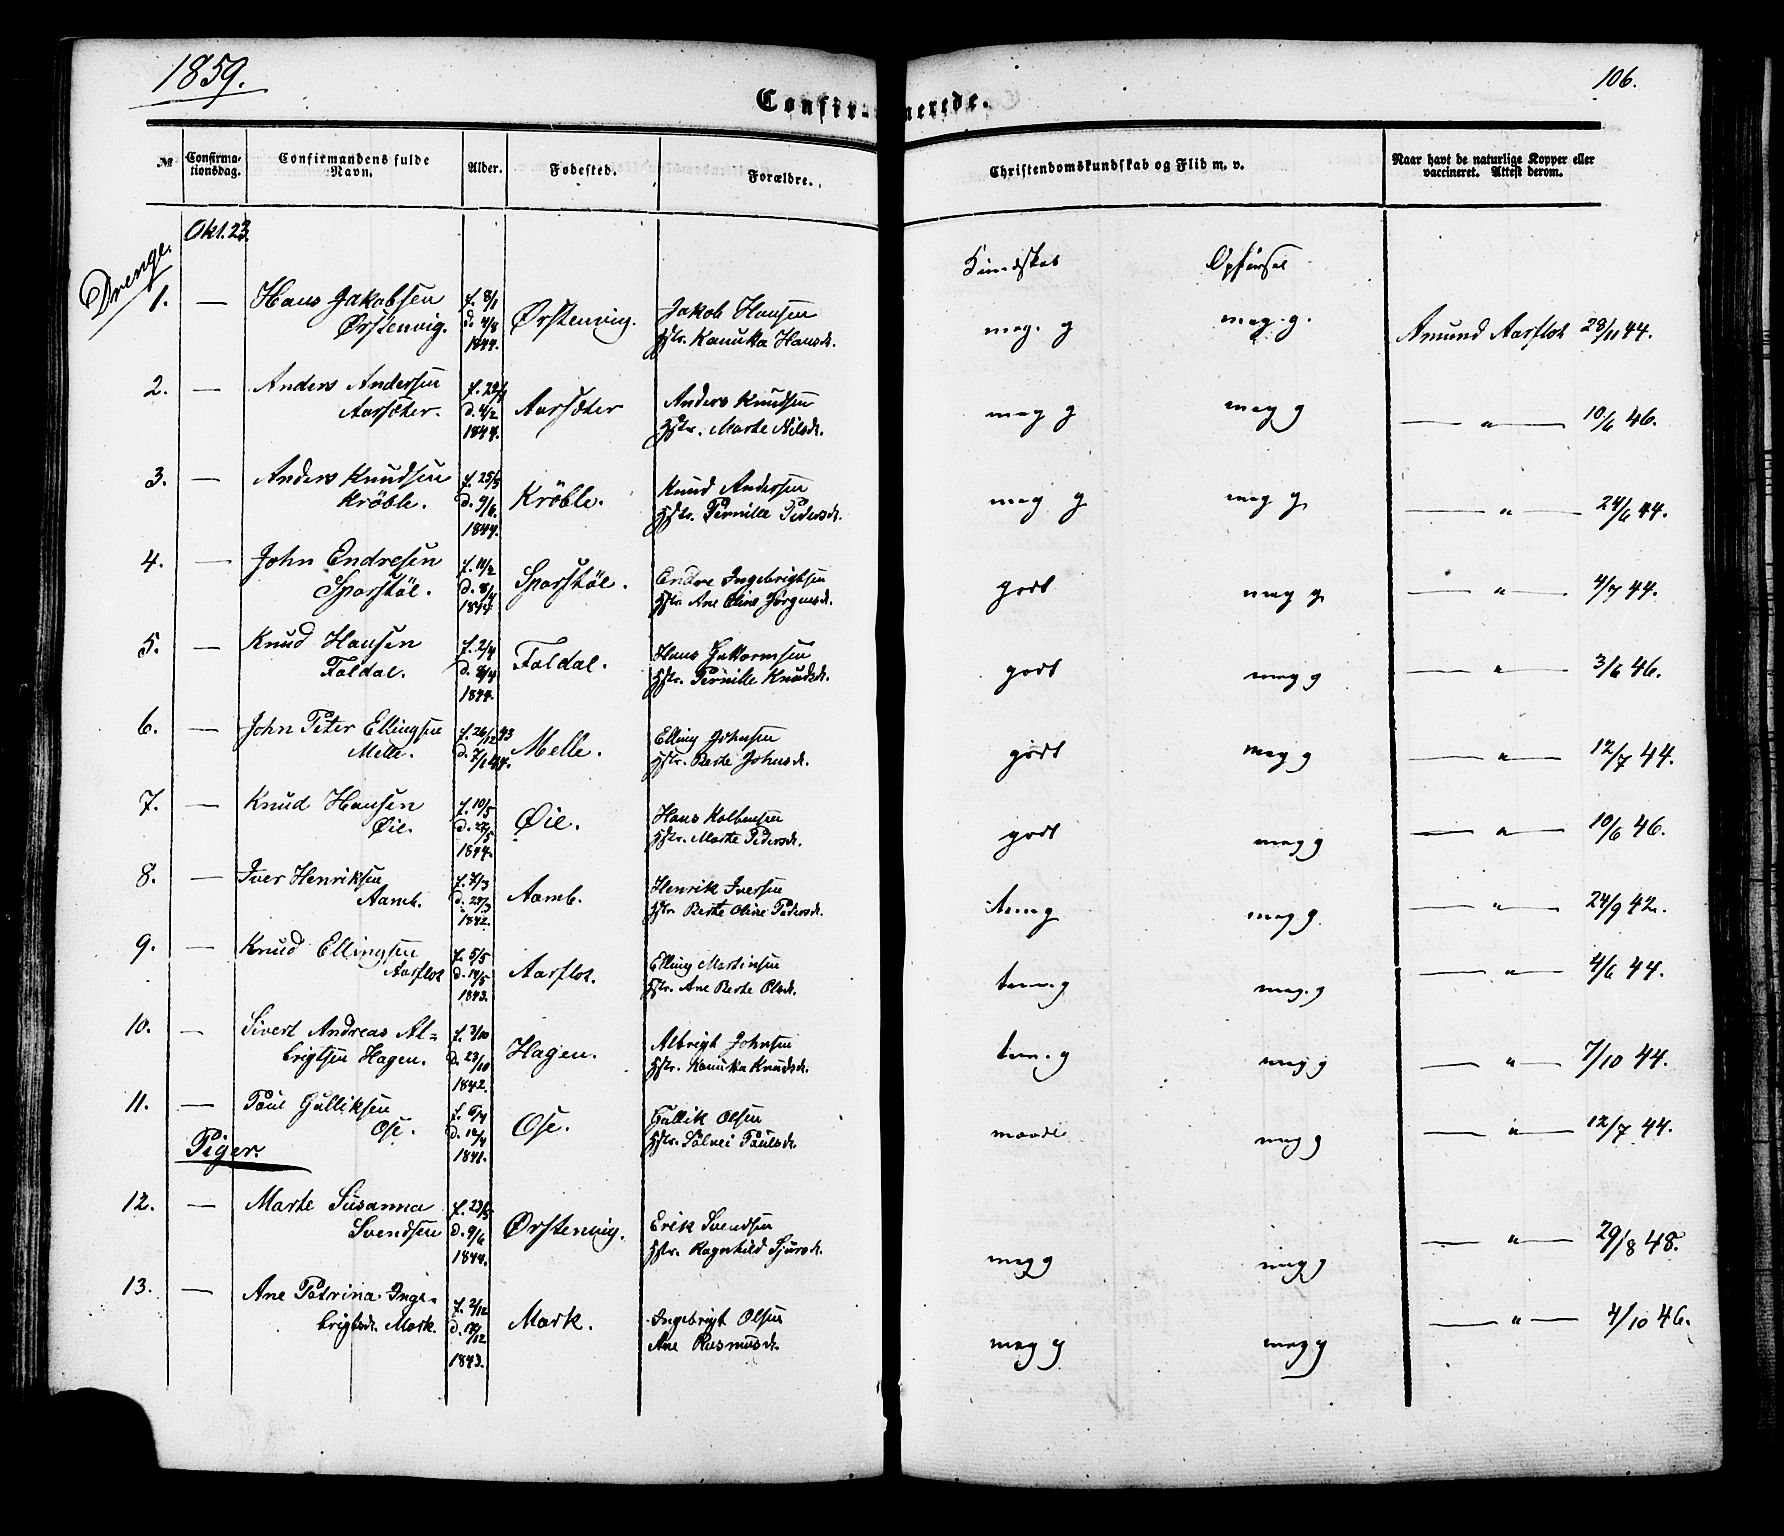 1859.
106.
Confirmerede.
№ Confirmationsdag. Confirmandens fulde Navn. Alder. Fødested. Forældre. Christendomskundskab og Flid m. v. Naar havt de naturlige Kopper eller vaccineret. Attest derom.
Okt. 23.
Drenge.
Kundskab Opførsel
1. — Hans Jakobsen f. 8/1 Ørstenvig. Jakob Hansen meg. g meg. g. Amund Aarflot 28/11 44.
Ørstenvig. d. 4/8 Hstr. Kanuka Hansdr.
1844.
2. — Anders Andersen Aarsæter Anders Knudsen meg g meg g — " — 10/6 46.
Aarsæter. d. 4/2 Hstr. Marte Nilsdr.
1844.
3. — Anders Knudsen f. 25/5 Krøble. Knud Andersen meg g meg g — " — 24/6 44.
Krøble. d. 9/6. Hstr. Pernille Pedersdr.
1844.
4. — John Endresen f. 11/2 Sporstøl. Endre Ingebrigtsen godt meg g — " — 4/7 44.
Sporstøl. d. 8/4 Hstr. Ane Oline Jørgensdr.
1844
5. — Knud Hansen f. 2/4 Foldal. Hans Guttormsen godt meg g — " — 3/6 46.
Foldal. d. 8/4 Hstr. Pernille Knudsdr.
1844.
6. — John Peter Ellingsen f. 26/12 43 Melle. Elling Johnsen godt meg g — " — 12/7 44.
Melle. d. 7/1 44. Hstr. Berte Johnsdr.
7. — Knud Hansen f. 10/5 Øie. Hans Kolbensen godt meg g — " — 10/6 46.
Øie. d. 27/5 Hstr. Marte Pedersdr.
1844.
8. — Iver Henriksen f. 7/3 Aamb. Henrik Iversen tem g meg g. — " — 24/9 42.
Aamb. d. 27/3 Hstr. Berte Oline Pedersdr.
1842.
9. — Knud Ellingsen f. 5/5 Aarflot. Elling Martinsen tem. g meg. g — " — 4/6 44.
Aarflot d. 14/5 Hstr. Ane Berte Olsdr.
1843.
10. — Sivert Andreas Al= f. 3/10 Hagen. Albrigt Johnsen tem. g meg g — " — 7/10 44.
brigtsen Hagen. d. 23/10 Hstr. Kanuka Knudsdr.
1842.
11. — Poul Gulliksen f. 6/4 Ose. Gullik Olsen maade meg g — " — 12/7 44.
Ose. d. 12/4 Hstr. Sølvei Poulsdr.
1841.
Piger.
12. — Marte Susanna f. 23/5 Ørstenvig. Erik Svendsen meg g meg g — " — 29/8 48.
Svendsen d. 9/6 Hstr. Ragnhild Sjursdr.
1844.
13. — Ane Petrina Inge- f. 2/12 Mork. Ingebrigt Olsen meg g meg g — " — 4/10 46.
brigtsdr. Mork. d. 17/12 Ane Rasmusdr.
1843.